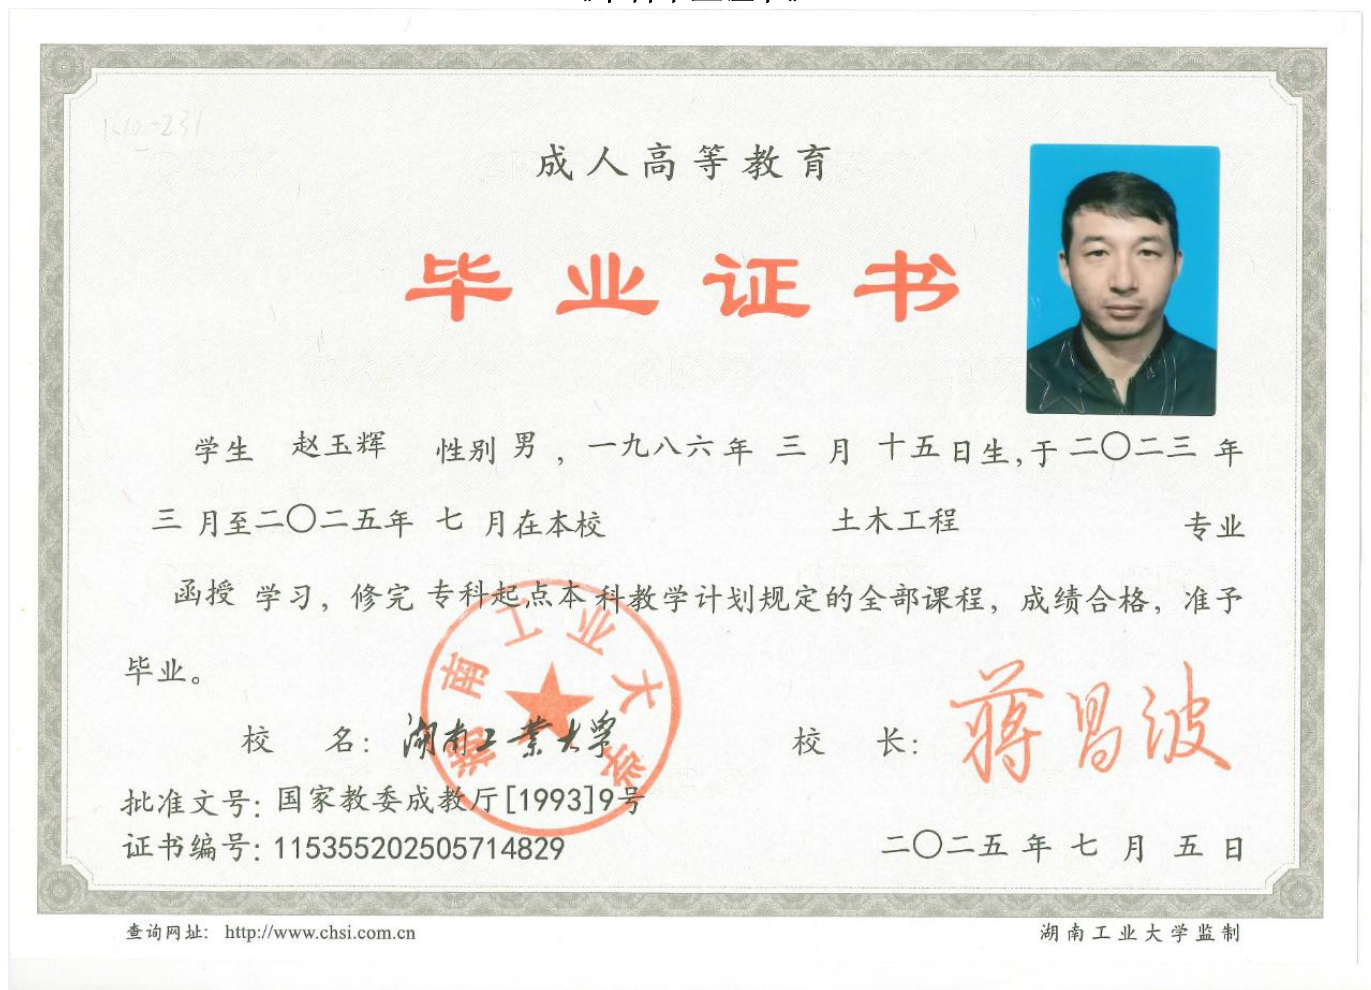 成人高等教育
毕业证书
学生 赵玉辉 性别 男 ，一九八六年 三 月 十五日生，于二〇二三 年
三 月至二〇二五年 七 月在本校 土木工程 专业
函授 学习，修完 专科起点本 科教学计划规定的全部课程，成绩合格，准予
毕业。
湖南工业大学
校 名： 湖南工業大学 校 长： 蒋昌波
批准文号：国家教委成教厅[1993]9号
证书编号：115355202505714829 二〇二五 年 七 月 五 日
查询网址： http://www.chsi.com.cn 湖南工业大学监制